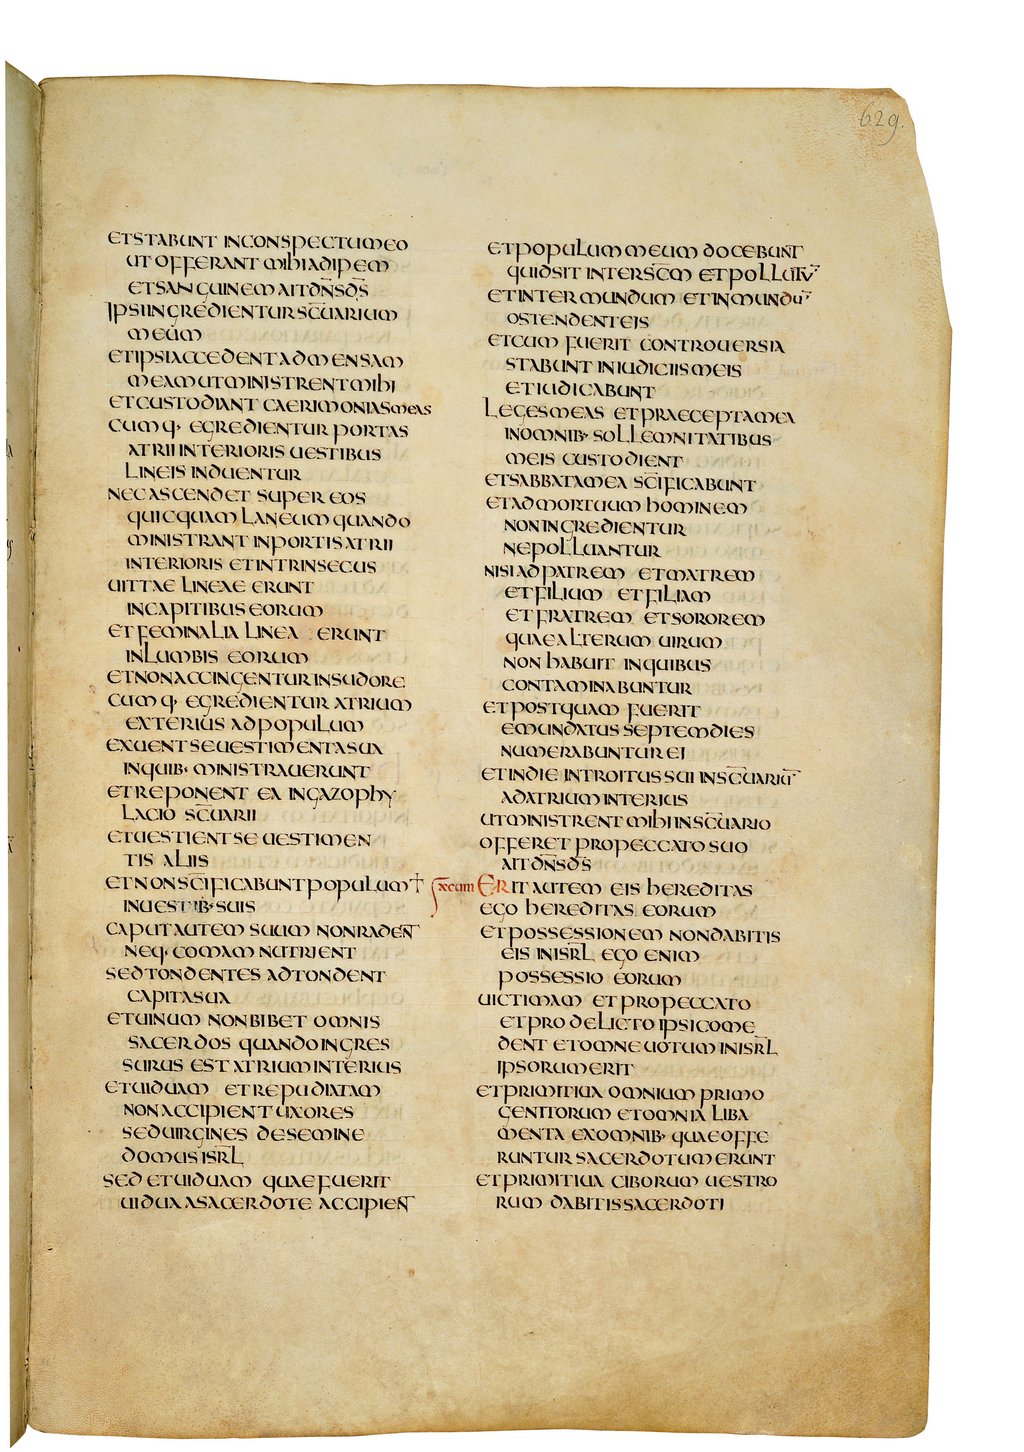 629.
ET STABUNT IN CONSPECTU MEO
UT OFFERANT MIHI ADIPEM
ET SANGUINEM AIT DN̄S D̄S
IPSI INGREDIENTUR SC̄UARIUM
MEUM
ET IPSI ACCEDENT AD MENSAM
MEAM UT MINISTRENT MIHI
ET CUSTODIANT CAERIMONIAS MEAS
CUMQ· EGREDIENTUR PORTAS
ATRII INTERIORIS UESTIBUS
LINEIS INDUENTUR
NEC ASCENDET SUPER EOS
QUICQUAM LANEUM QUANDO
MINISTRANT IN PORTIS ATRII
INTERIORIS ET INTRINSECUS
UITTAE LINEAE ERUNT
IN CAPITIBUS EORUM
ET FEMINALIA LINEA ERUNT
IN LUMBIS EORUM
ET NON ACCINGENTUR IN SUDORE
CUMQ· EGREDIENTUR ATRIUM
EXTERIUS AD POPULUM
EXUENT SE UESTIMENTA SUA
IN QUIB· MINISTRAUERUNT
ET REPONENT EA IN GAZOPHY
LACIO SC̄UARII
ET UESTIENT SE UESTIMEN
TIS ALIIS
ET NON SC̄IFICABUNT POPULUM
IN UESTIB· SUIS
CAPUT AUTEM SUUM NON RADEN̄T
NEQ· COMAM NUTRIENT
SED TONDENTES ADTONDENT
CAPITA SUA
ET UINUM NON BIBET OMNIS
SACERDOS QUANDO INGRES
SURUS EST ATRIUM INTERIUS
ET UIDUAM ET REPUDIATAM
NON ACCIPIENT UXORES
SED UIRGINES DE SEMINE
DOMUS ISR̄L
SED ET UIDUAM QUAE FUERIT
UIDUA A SACERDOTE ACCIPIEN̄T
ET POPULUM MEUM DOCEBUN̄T
QUID SIT INTER SC̄M ET POLLUTŪ
ET INTER MUNDUM ET INMUNDŪ
OSTENDENT EIS
ET CUM FUERIT CONTROUERSIA
STABUNT IN IUDICIIS MEIS
ET IUDICABUNT
LEGES MEAS ET PRAECEPTA MEA
IN OMNIB· SOLLEMNITATIBUS
MEIS CUSTODIENT
ET SABBATA MEA SC̄IFICABUNT
ET AD MORTUUM HOMINEM
NON INGREDIENTUR
NE POLLUANTUR
NISI AD PATREM ET MATREM
ET FILIUM ET FILIAM
ET FRATREM ET SOROREM
QUAE ALTERUM UIRUM
NON HABUIT IN QUIBUS
CONTAMINABUNTUR
ET POSTQUAM FUERIT
EMUNDATUS SEPTEM DIES
NUMERABUNTUR EI
ET IN DIE INTROITUS SUI IN SC̄UARIŪ
AD ATRIUM INTERIUS
UT MINISTRENT MIHI IN SC̄UARIO
OFFERET PRO PECCATO SUO
AIT DN̄S D̄S
ERIT AUTEM EIS HEREDITAS
EGO HEREDITAS EORUM
ET POSSESSIONEM NON DABITIS
EIS IN ISR̄L EGO ENIM
POSSESSIO EORUM
UICTIMAM ET PRO PECCATO
ET PRO DELICTO IPSI COME
DENT ET OMNE UOTUM IN ISR̄L
IPSORUM ERIT
ET PRIMITIUA OMNIUM PRIMO
GENITORUM ET OMNIA LIBA
MENTA EX OMNIB· QUAE OFFE
RUNTUR SACERDOTUM ERUNT
ET PRIMITIUA CIBORUM UESTRO
RUM DABITIS SACERDOTI